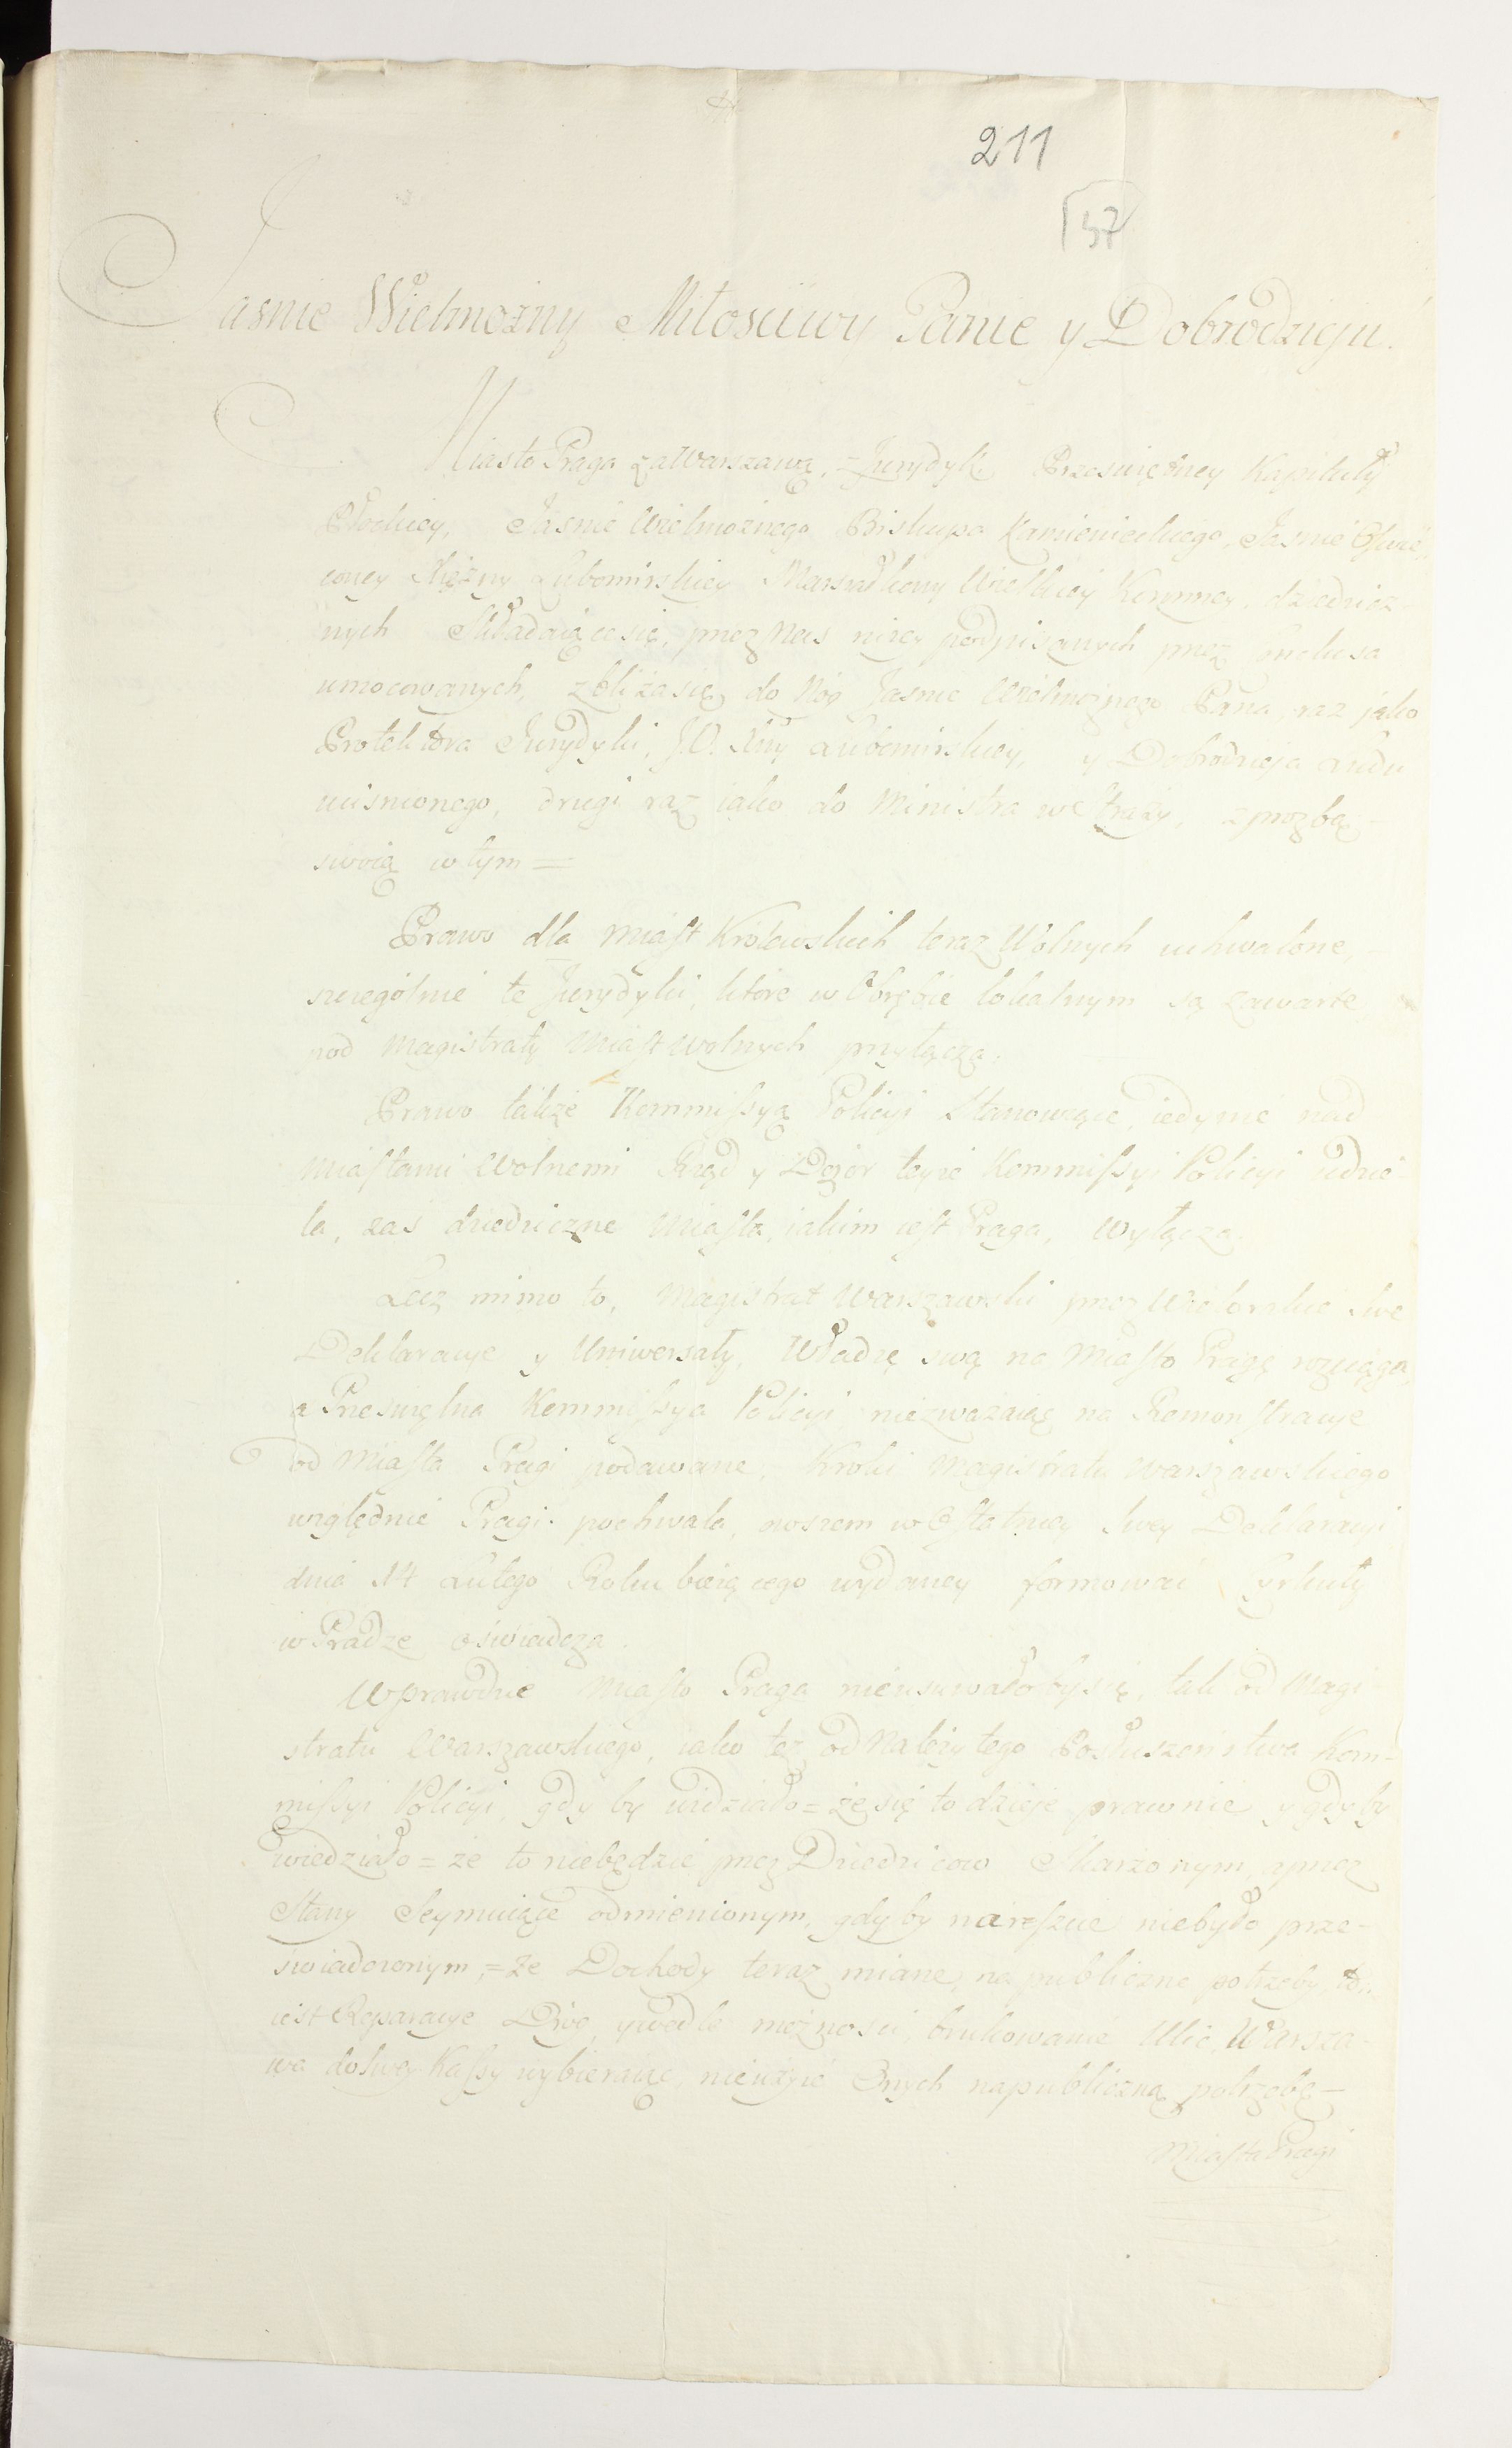 211
57
Jasnie Wielmozny Miłosciwy Panie y Dobrodzieju.
Miasto Praga za Warszawą, z Jurydyk Przeswiętney Kapituły
Płockiey, Jasnie Wielmożnego Biskupa Kamienieckiego, Jasnie Oswie-
coney Xiężny Lubomirskiey Marszałkowy Wielkiey Koronney, dziedzicz-
nych składaiące się, przez Nas nizey podpisanych przez
umocowanych, zbliża się do Nóg Jasnie Wielmożnego Pana, raz jako
Protektora Jurydyki, J.O. Xny Lubomirskiey, y Dobrodzieja Ludu
ucisnionego, drugi raz iako do Ministra w Straży, z prozbą
swoią w tym =
Prawo dla Miast Królewskich teraz Wolnych uchwalone,
szczególnie te Jurydyki, które w Obrębie lokalnym są zawarte
pod Magistraty Miast wolnych przyłącza.
Prawo także Kommissyą Policyi Stanowiące, iedynie nad
Miastami Wolnemi Rząd y Dozór teyże Kommissyi Policyi udzie-
la, zas dziedziczne Miasta, iakim iest Praga, wyłącza.
Lecz mimo to, Magistrat Warszawski przez Wielorakie Swe
Deklaracye y Uniwersały, Władzę swą na Miasto Pragę rozciąga,
a Przeswiętna Kommissya Policyi niezważaiąc na Remonstracye
od Miasta Pragi podawane, Kroki Magistratu Warszawskiego
względnie Pragi pochwala, owszem w Ostatniey Swey Deklaracyi
dnia 14 Lutego Roku bieżącego wydaney formować Cyrkuły
w Pradze oświadcza.
Wprawdzie Miasto Praga nieusuwałoby się, tak od Magi-
stratu Warszawskiego, iako też od Należytego Posłuszenstwa Kom-
missyi Policyi, gdy by widziało = że się to dzieje prawnie, y gdy by
wiedziało = że to niebędzie przez Dziedziców Skarżonym, y przez
Stany Seymuiące odmienionym, gdy by nareszcie niebyło prze-
swiadczonym, = że Dochody teraz miane, na publiczne potrzeby, to
iest Reparacye Dróg, y wedle możnosci, brukowanie Ulic, Warsza-
wa do swey Kassy wybieraiąc, nieużyie Onych na publiczną potrzebę
Miasta Pragi